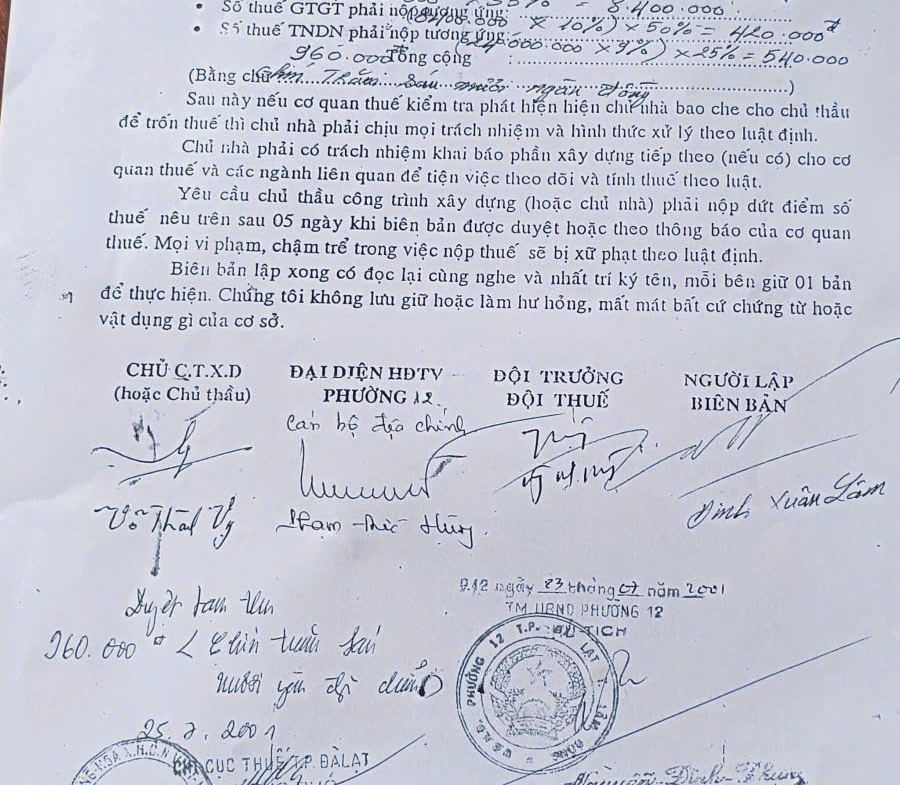 = 8.400.000
• Số thuế GTGT phải nộp tương ứng: × 10%) × 50% = 420.000đ
• Số thuế TNDN phải nộp tương ứng: (24.000.000 × 9%) × 25% = 540.000
960.000đ Tổng cộng :
(Bằng chữ Chín Trăm Sáu mươi ngàn đồng)
Sau này nếu cơ quan thuế kiểm tra phát hiện hiện chủ nhà bao che cho chủ thầu
để trốn thuế thì chủ nhà phải chịu mọi trách nhiệm và hình thức xử lý theo luật định.
Chủ nhà phải có trách nhiệm khai báo phần xây dựng tiếp theo (nếu có) cho cơ
quan thuế và các ngành liên quan để tiện việc theo dõi và tính thuế theo luật.
Yêu cầu chủ thầu công trình xây dựng (hoặc chủ nhà) phải nộp dứt điểm số
thuế nêu trên sau 05 ngày khi biên bản được duyệt hoặc theo thông báo của cơ quan
thuế. Mọi vi phạm, chậm trể trong việc nộp thuế sẽ bị xữ phạt theo luật định.
Biên bản lập xong có đọc lại cùng nghe và nhất trí ký tên, mỗi bên giữ 01 bản
để thực hiện. Chúng tôi không lưu giữ hoặc làm hư hỏng, mất mát bất cứ chứng từ hoặc
vật dụng gì của cơ sở.
CHỦ C.T.X.D ĐẠI DIỆN HĐTV ĐỘI TRƯỞNG NGƯỜI LẬP
(hoặc Chủ thầu) PHƯỜNG 12 ĐỘI THUẾ BIÊN BẢN
Cán bộ địa chính
Võ Thành Vỹ Phạm Hùng Đinh Xuân Lâm
Duyệt tạm thu
960.000đ < Chín trăm sáu
mươi ngàn
25.7.2001
P.12 ngày 23 tháng 07 năm 2001
TM UBND PHƯỜNG 12
CHỦ TỊCH
PHƯỜNG 12 T.P. ĐÀ LẠT T. LÂM ĐỒNG
CHI CỤC THUẾ TP. ĐÀLẠT
Nguyễn Đình Phung